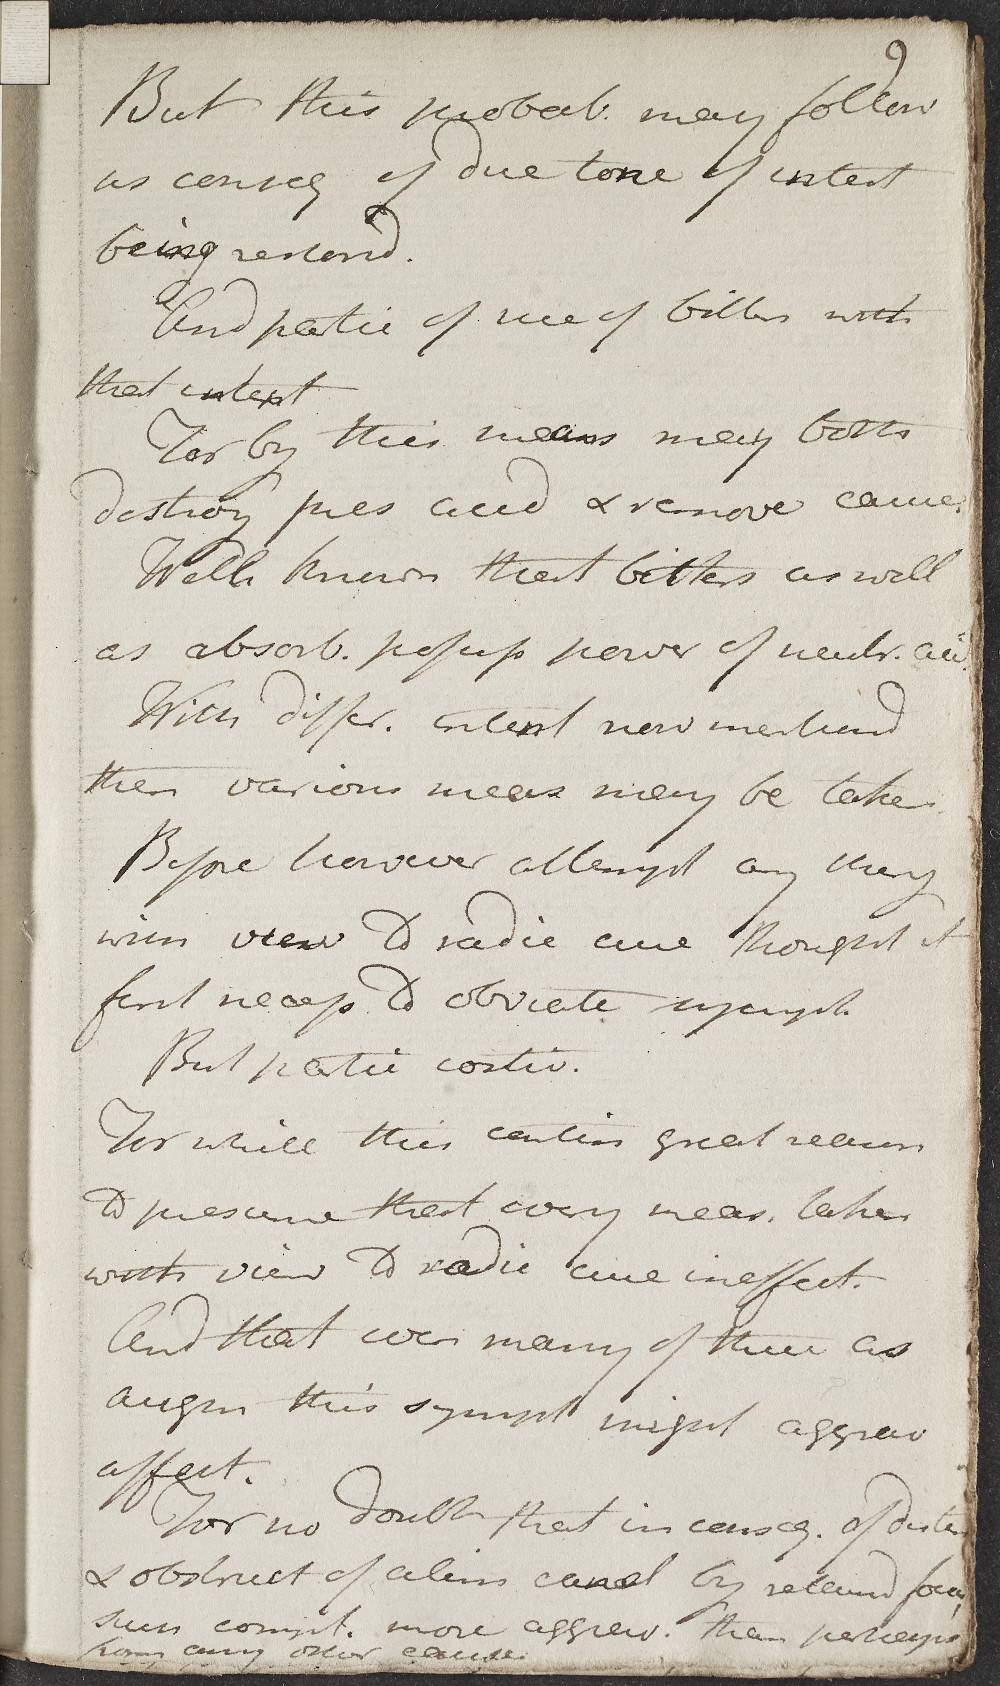 9
But this probab. may follow
as conseq of due tone of intest
being restord.
And partic of use of bitters with
that intent
For by this means may both
destroy pres acid & remove cause.
Well known that bitters as well
as absorb. possess power of neutr. acid.
With differ. intent now mentiond
then various meas may be taken
Before however attempt any thing
with view to radic cure thought it
first necess to obviate sympt.
But partic costiv.
For while this contin great reason
to presume that every meas. taken
with view to radic cure ineffect.
And that even many of these as
augm this sympt might aggrav
affect.
For no doubt that in conseq. of disten
& obstruct of alim canal by retaind foeces,
such compt. more aggrav. than perhaps
from any other cause.